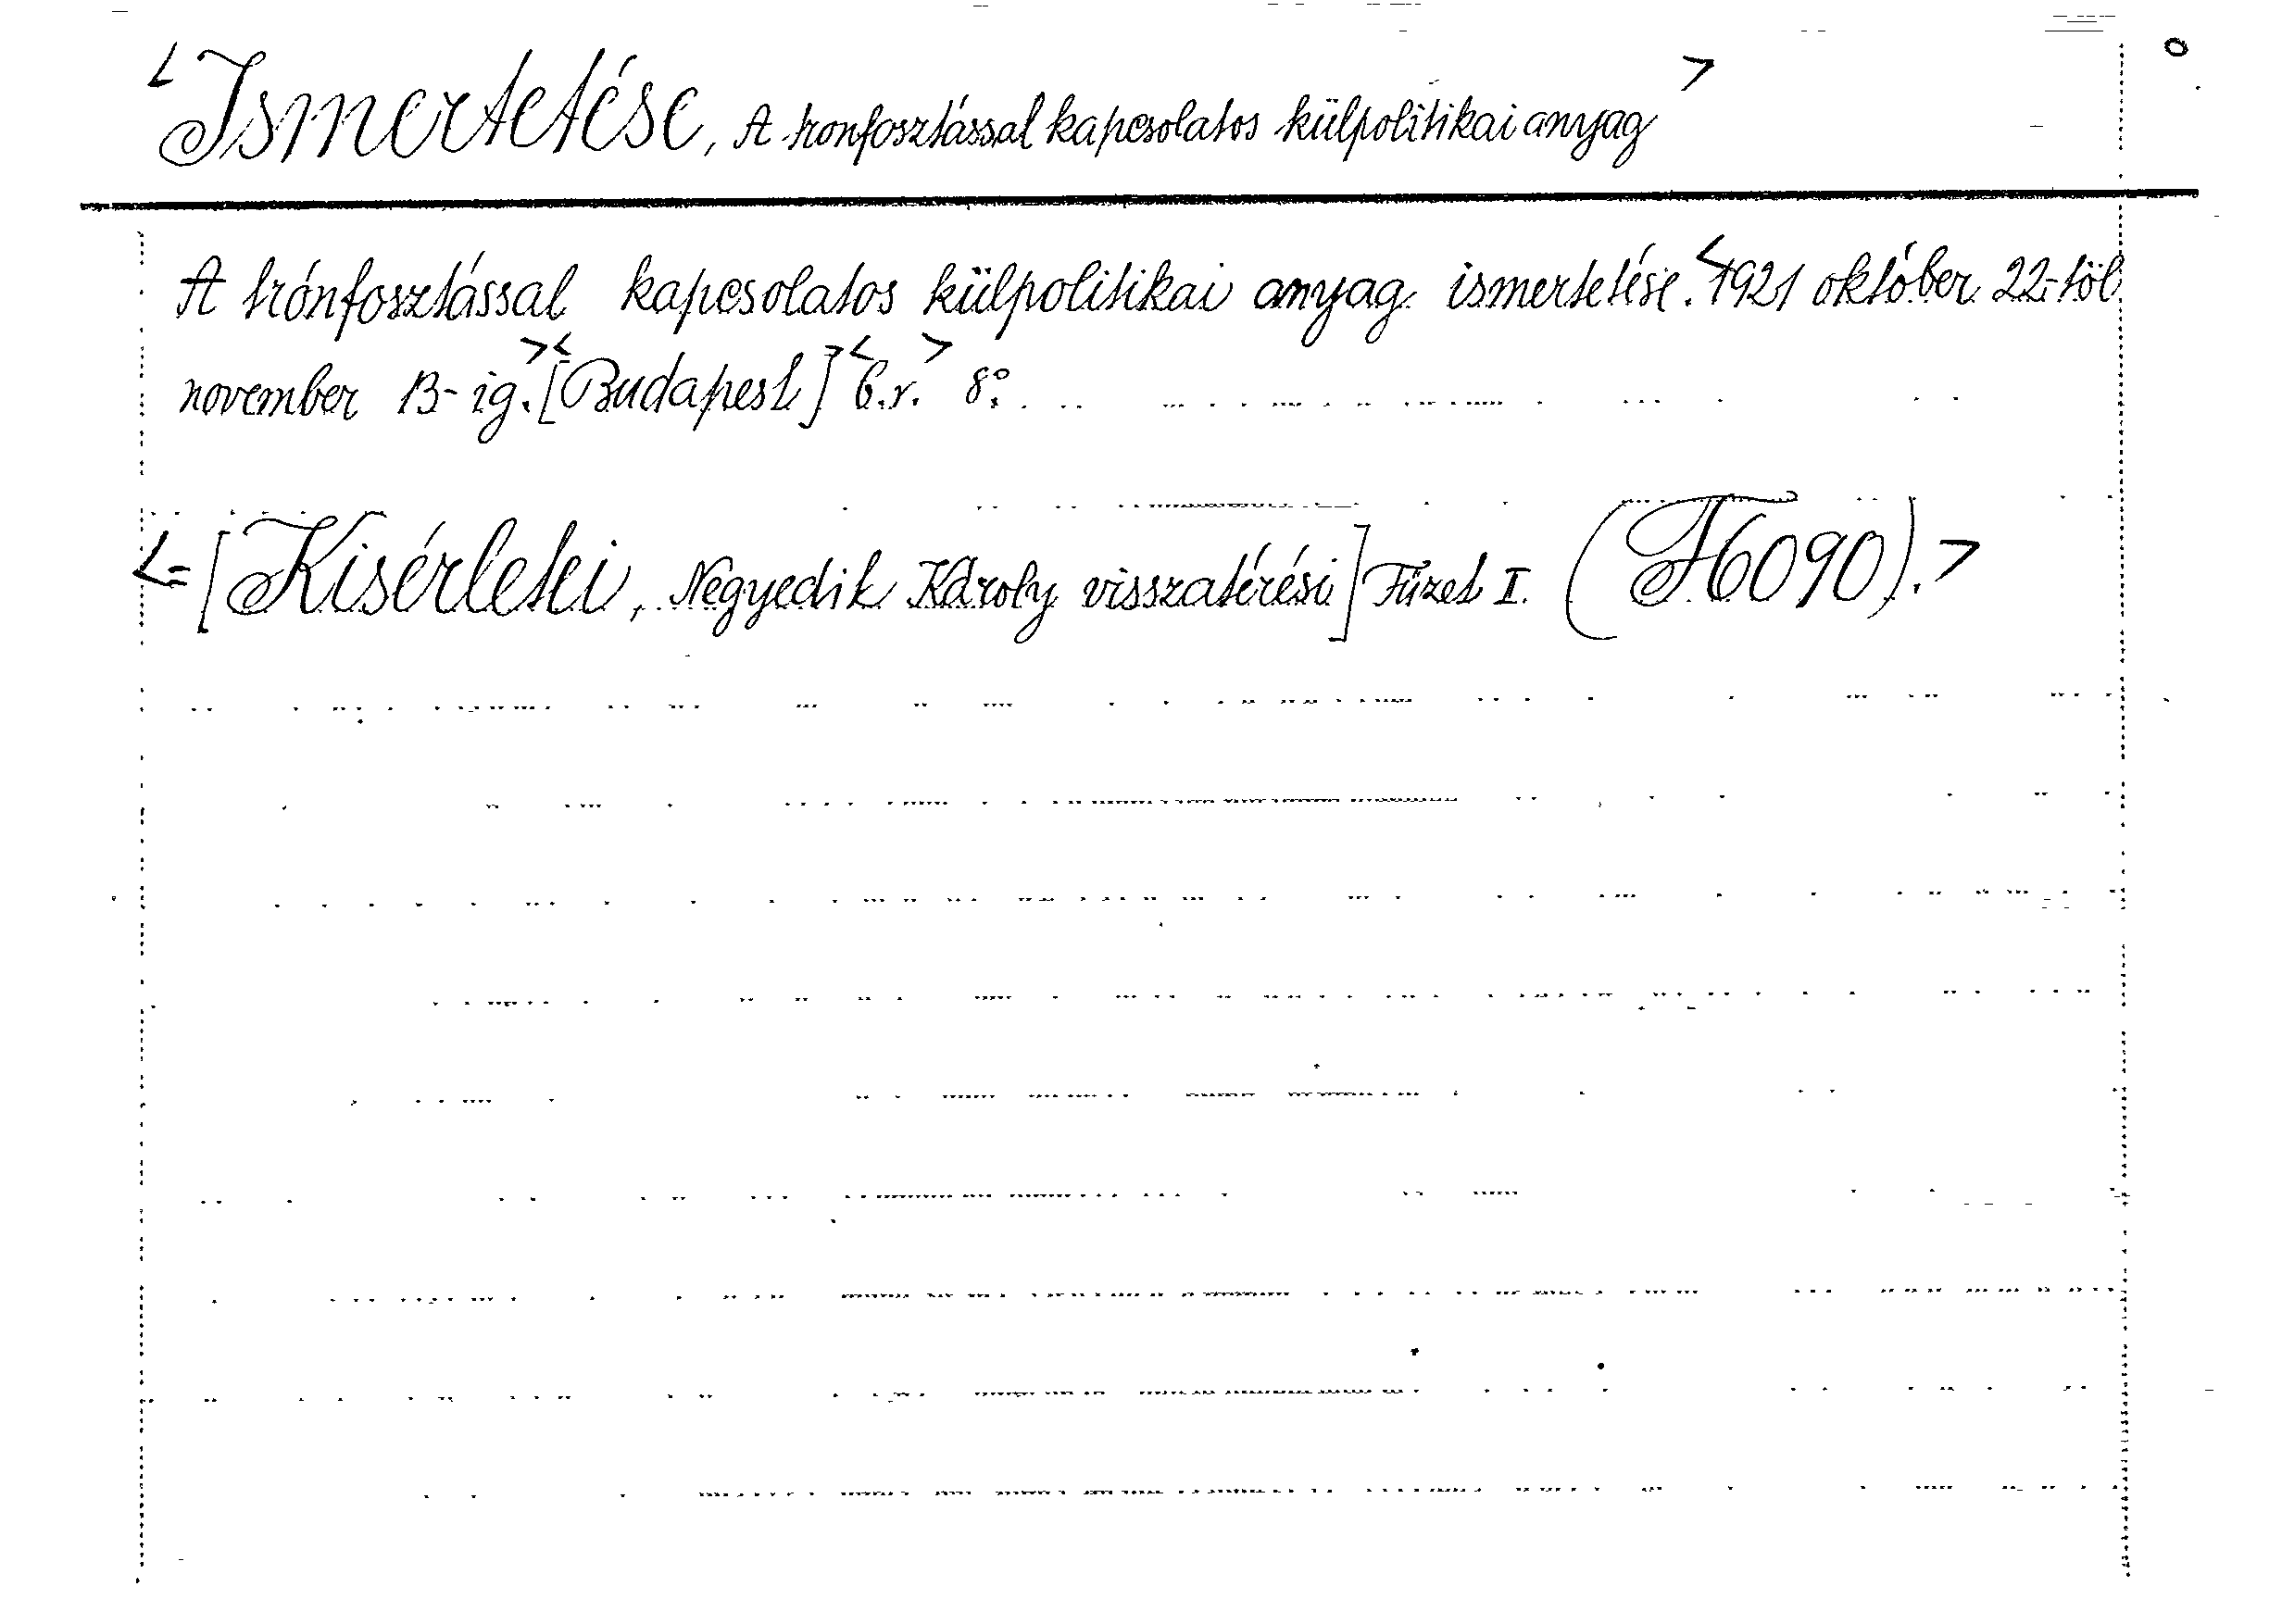 <Ismertetése, A tronfosztással kapcsolatos külpolitikai anyag>
A trónfosztással kapcsolatos külpolitikai anyag ismertetése. <1921 október 22-től
november 13-ig.> <[Budapest]> <É.n.> 8°.
<=[Kisérletei, Negyedik Károly visszatérési] Füzet I. (F6090).>